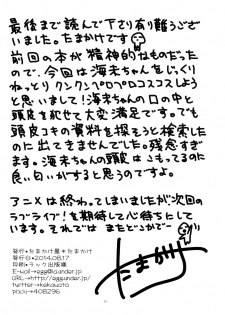 最後まで読んで下さり有り難うござ
いました。たまかけです
前回の本が精神的なものだった
ので、今回は海未ちゃんをじっくり
ねっとりクンクンペロペロコスコスしよう
と思いまして！海未ちゃんの口の中と
頭皮を犯せて大変満足です。でも
頭皮コキの資料を探そうと検索した
のに出てきませんでした。残念すぎ
ます。海未ちゃんの頭皮はこもってるのに
良い匂いがすると思うのですよ。
アニメは終わってしまいましたが次回の
ラブライブ！を期待して心待ちにして
います。それではまたどこかで〜
発行*たまかけ屋*たまかけ
発行日*2014.08.17
印刷*ラック出版様
たまかけ